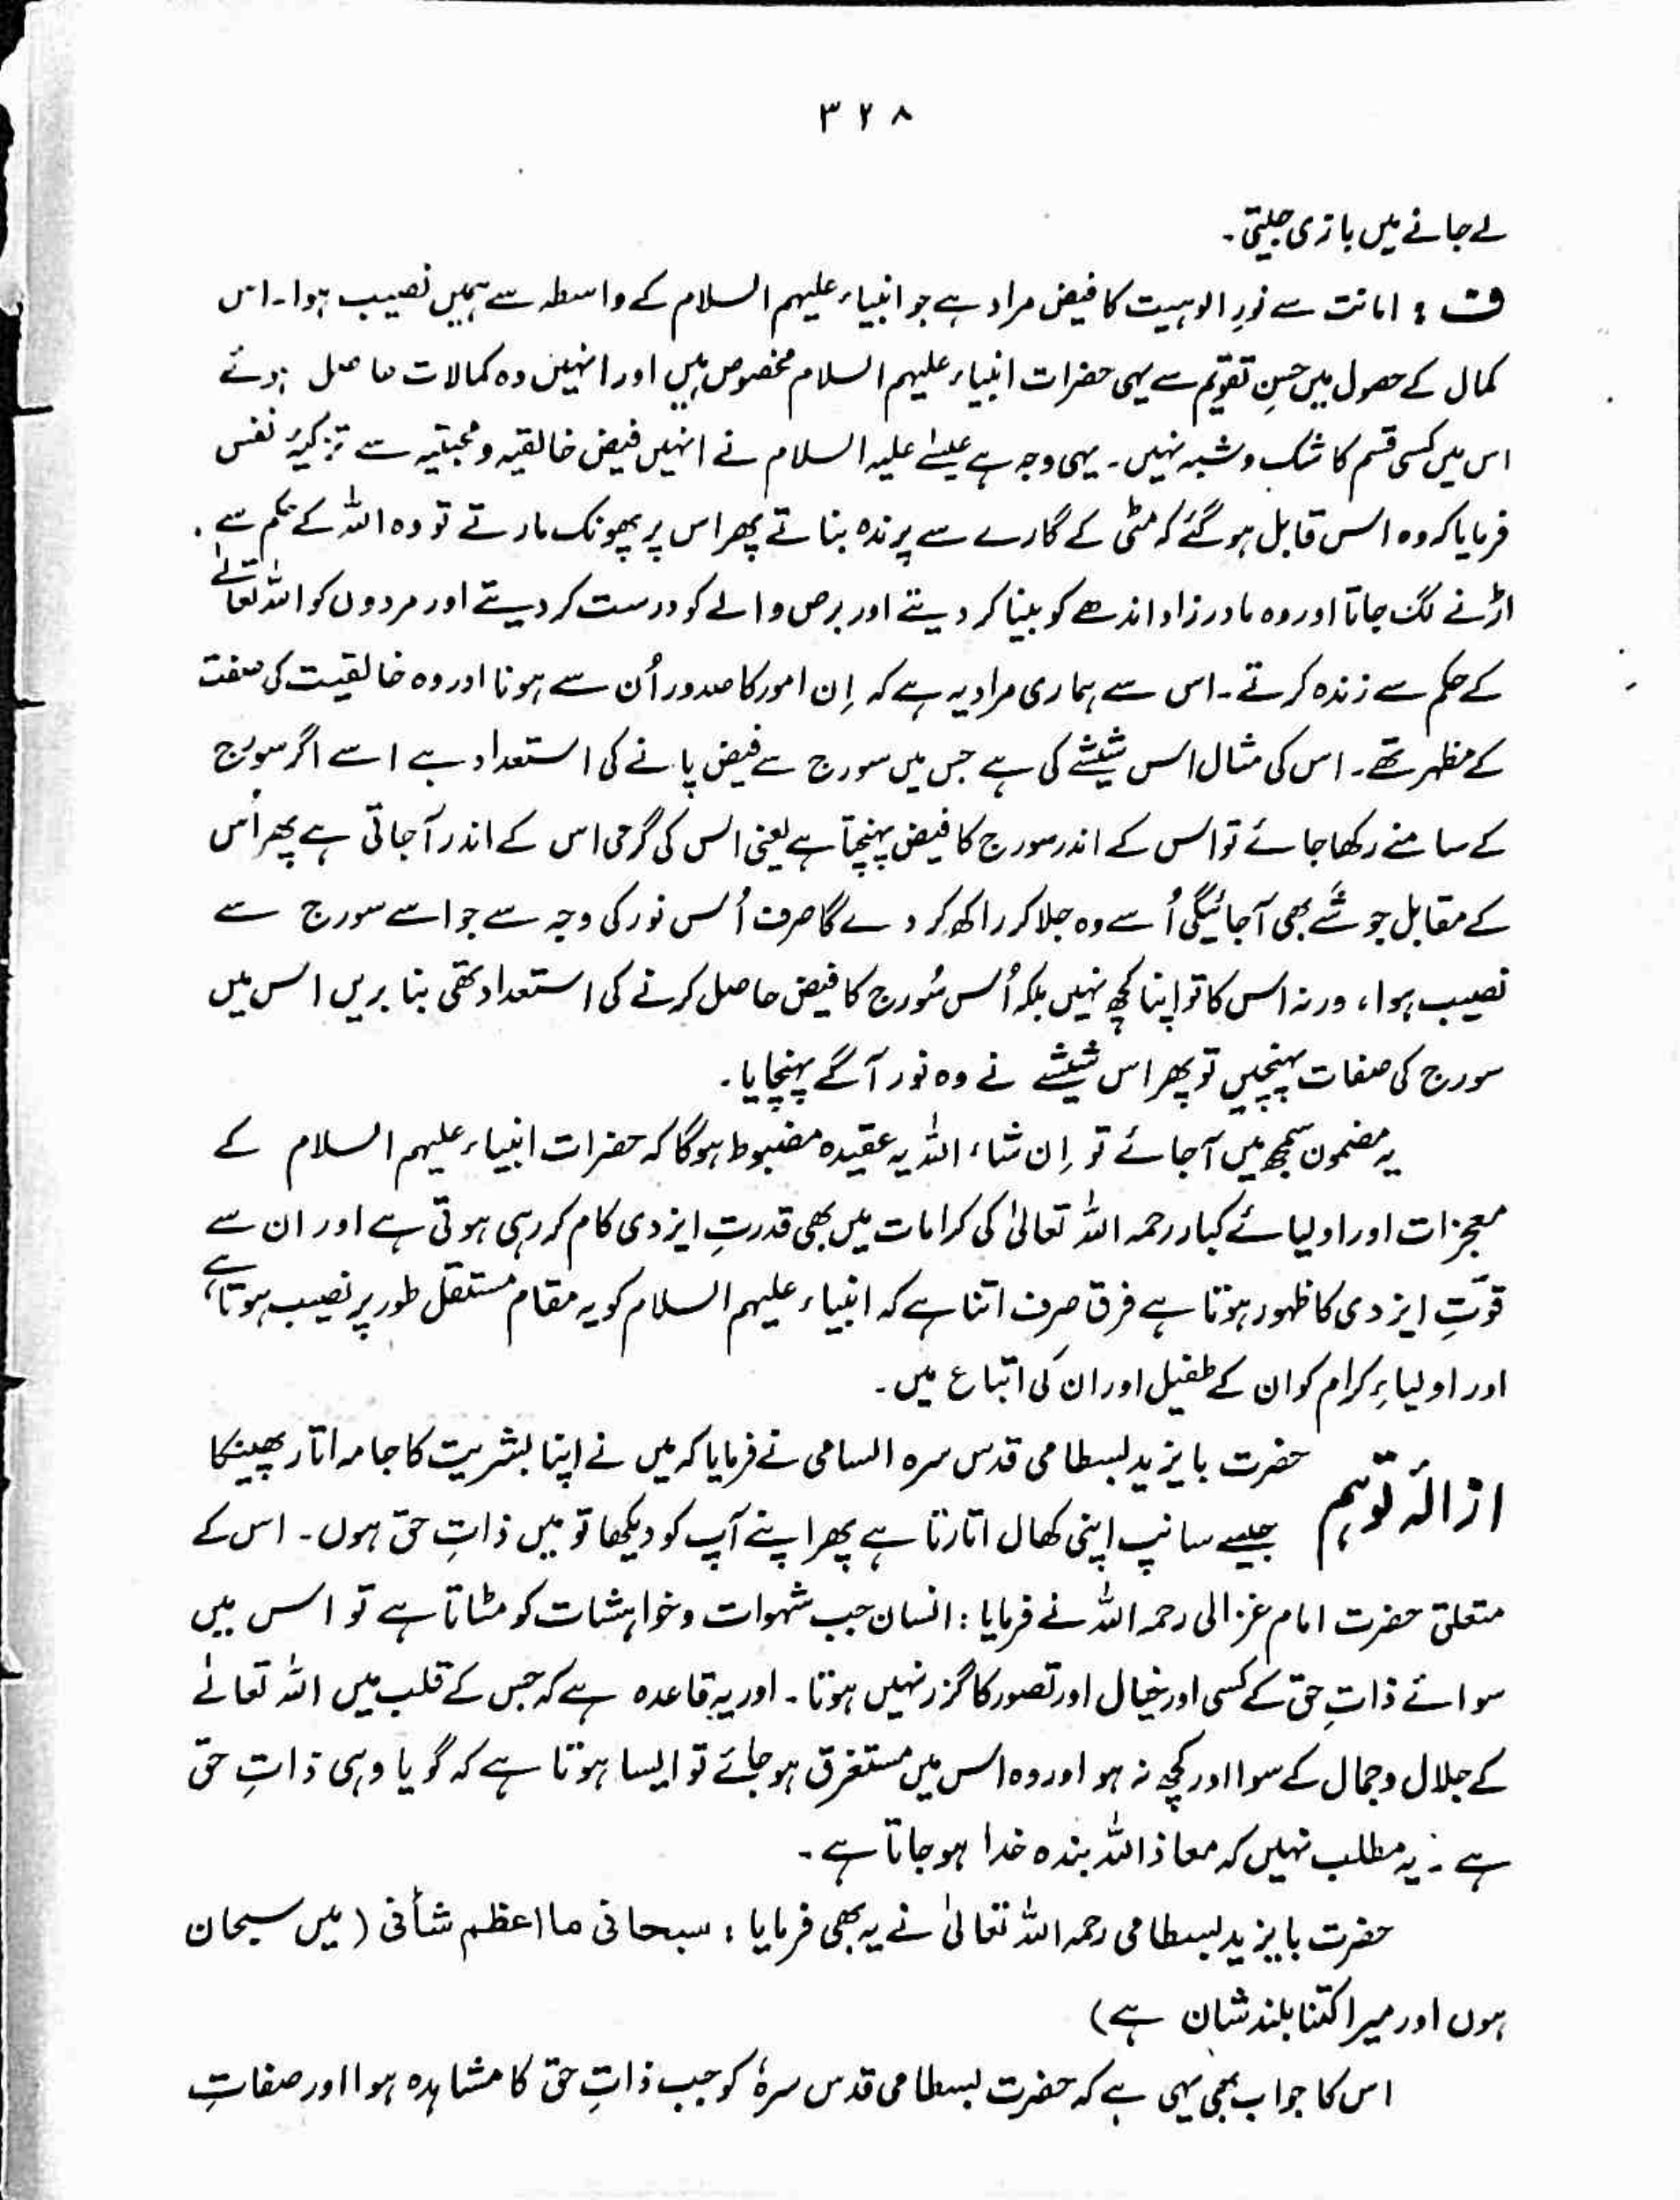 ۳۲۸
لے جانے میں بازی جیتی۔
ف : امانت سے نورِ الوہیت کا فیض مراد ہے جو انبیاء علیہم السلام کے واسطہ سے ہمیں نصیب ہوا۔ اس
کمال کے حصول میں حسنِ تقویم سے یہی حضرات انبیاء علیہم السلام مخصوص ہیں اور انہیں وہ کمالات حاصل ہوئے
اس میں کسی قسم کا شک و شبہ نہیں۔ یہی وجہ ہے عیسٰے علیہ السلام نے انہیں فیض خالقیہ و محبتیہ سے تزکیۂ نفس
فرمایا کہ وہ اس قابل ہو گئے کہ مٹی کے گارے سے پرندہ بناتے پھر اس پر پھونک مارتے تو وہ اللہ کے حکم سے
اڑنے لگ جاتا اور وہ مادر زاد اندھے کو بینا کر دیتے اور برص والے کو درست کر دیتے اور مردوں کو اللہ تعالٰے
کے حکم سے زندہ کرتے۔ اس سے ہماری مراد یہ ہے کہ اِن امور کا صدور اُن سے ہونا اور وہ خالقیت کی صفت
کے مظہر تھے۔ اس کی مثال اس شیشے کی ہے جس میں سورج سے فیض پانے کی استعداد ہے اسے اگر سورج
کے سامنے رکھا جائے تو اس کے اندر سورج کا فیض پہنچتا ہے یعنی اس کی گرمی اس کے اندر آجاتی ہے پھر اُس
کے مقابل جو شے بھی آجائیگی اُسے وہ جلا کر راکھ کر دے گا صرف اُس نور کی وجہ سے جو اسے سورج سے
نصیب ہوا، ورنہ اس کا تو اپنا کچھ نہیں بلکہ اُس سُورج کا فیض حاصل کرنے کی استعداد تھی بنا بریں اس میں
سورج کی صفات پہنچیں تو پھر اس شیشے نے وہ نور آگے پہنچایا۔
یہ مضمون سمجھ میں آجائے تو اِن شاء اللہ یہ عقیدہ مضبوط ہوگا کہ حضرات انبیاء علیہم السلام کے
معجزات اور اولیائے کبار رحمہ اللہ تعالیٰ کی کرامات میں بھی قدرتِ ایزدی کام کر رہی ہوتی ہے اور ان سے
قوّتِ ایزدی کا ظہور ہوتا ہے فرق صِرف اتنا ہے کہ انبیاء علیہم السلام کو یہ مقام مستقل طور پر نصیب ہوتا ہے،
اور اولیاءِ کرام کو ان کے طفیل اور ان کی اتباع میں۔
ازالۂ توہم حضرت بایزید بسطامی قدس سرہ السامی نے فرمایا کہ میں نے اپنا بشریت کا جامہ اتار پھینکا
جیسے سانپ اپنی کھال اتارتا ہے پھر اپنے آپ کو دیکھا تو میں ذاتِ حق ہوں۔ اس کے
متعلق حضرت امام غزالی رحمہ اللہ نے فرمایا : انسان جب شہوات و خواہشات کو مٹاتا ہے تو اس میں
سوائے ذاتِ حق کے کسی اور خیال اور تصور کا گزر نہیں ہوتا۔ اور یہ قاعدہ ہے کہ جس کے قلب میں اللہ تعالٰے
کے جلال و جمال کے سوا اور کچھ نہ ہو اور وہ اس میں مستغرق ہو جائے تو ایسا ہوتا ہے کہ گویا وہی ذاتِ حق
ہے۔ یہ مطلب نہیں کہ معاذ اللہ بندہ خدا ہو جاتا ہے۔
حضرت بایزید بسطامی رحمہ اللہ تعالیٰ نے یہ بھی فرمایا : سبحانی ما اعظم شأنی (میں سبحان
ہوں اور میرا کتنا بلند شان ہے)
اس کا جواب بھی یہی ہے کہ حضرت بسطامی قدس سرہٗ کو جب ذاتِ حق کا مشاہدہ ہوا اور صفاتِ